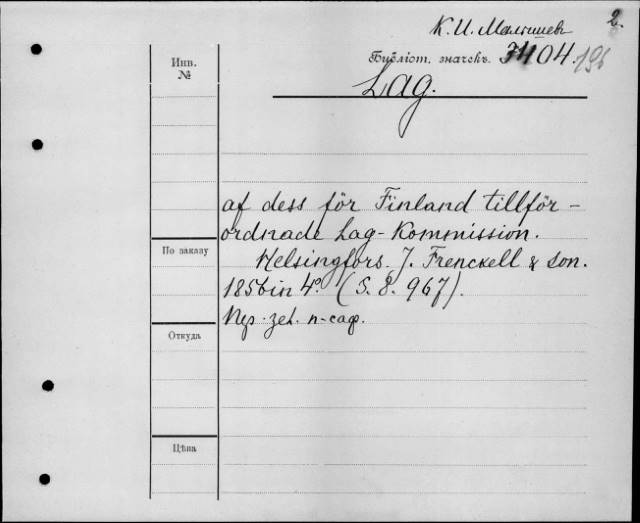 2.
К. И. Малышев
Инв.
№
Библіот. значекъ. 3404.
Lag.
af dess för Finland tillför-
ordnade Lag-Kommission.
По заказу
Helsingfors. J. Frenckell & son.
1856 in 4º. (S. 8. 967).
Пер. зел. п-саф.
Откуда
Цѣна